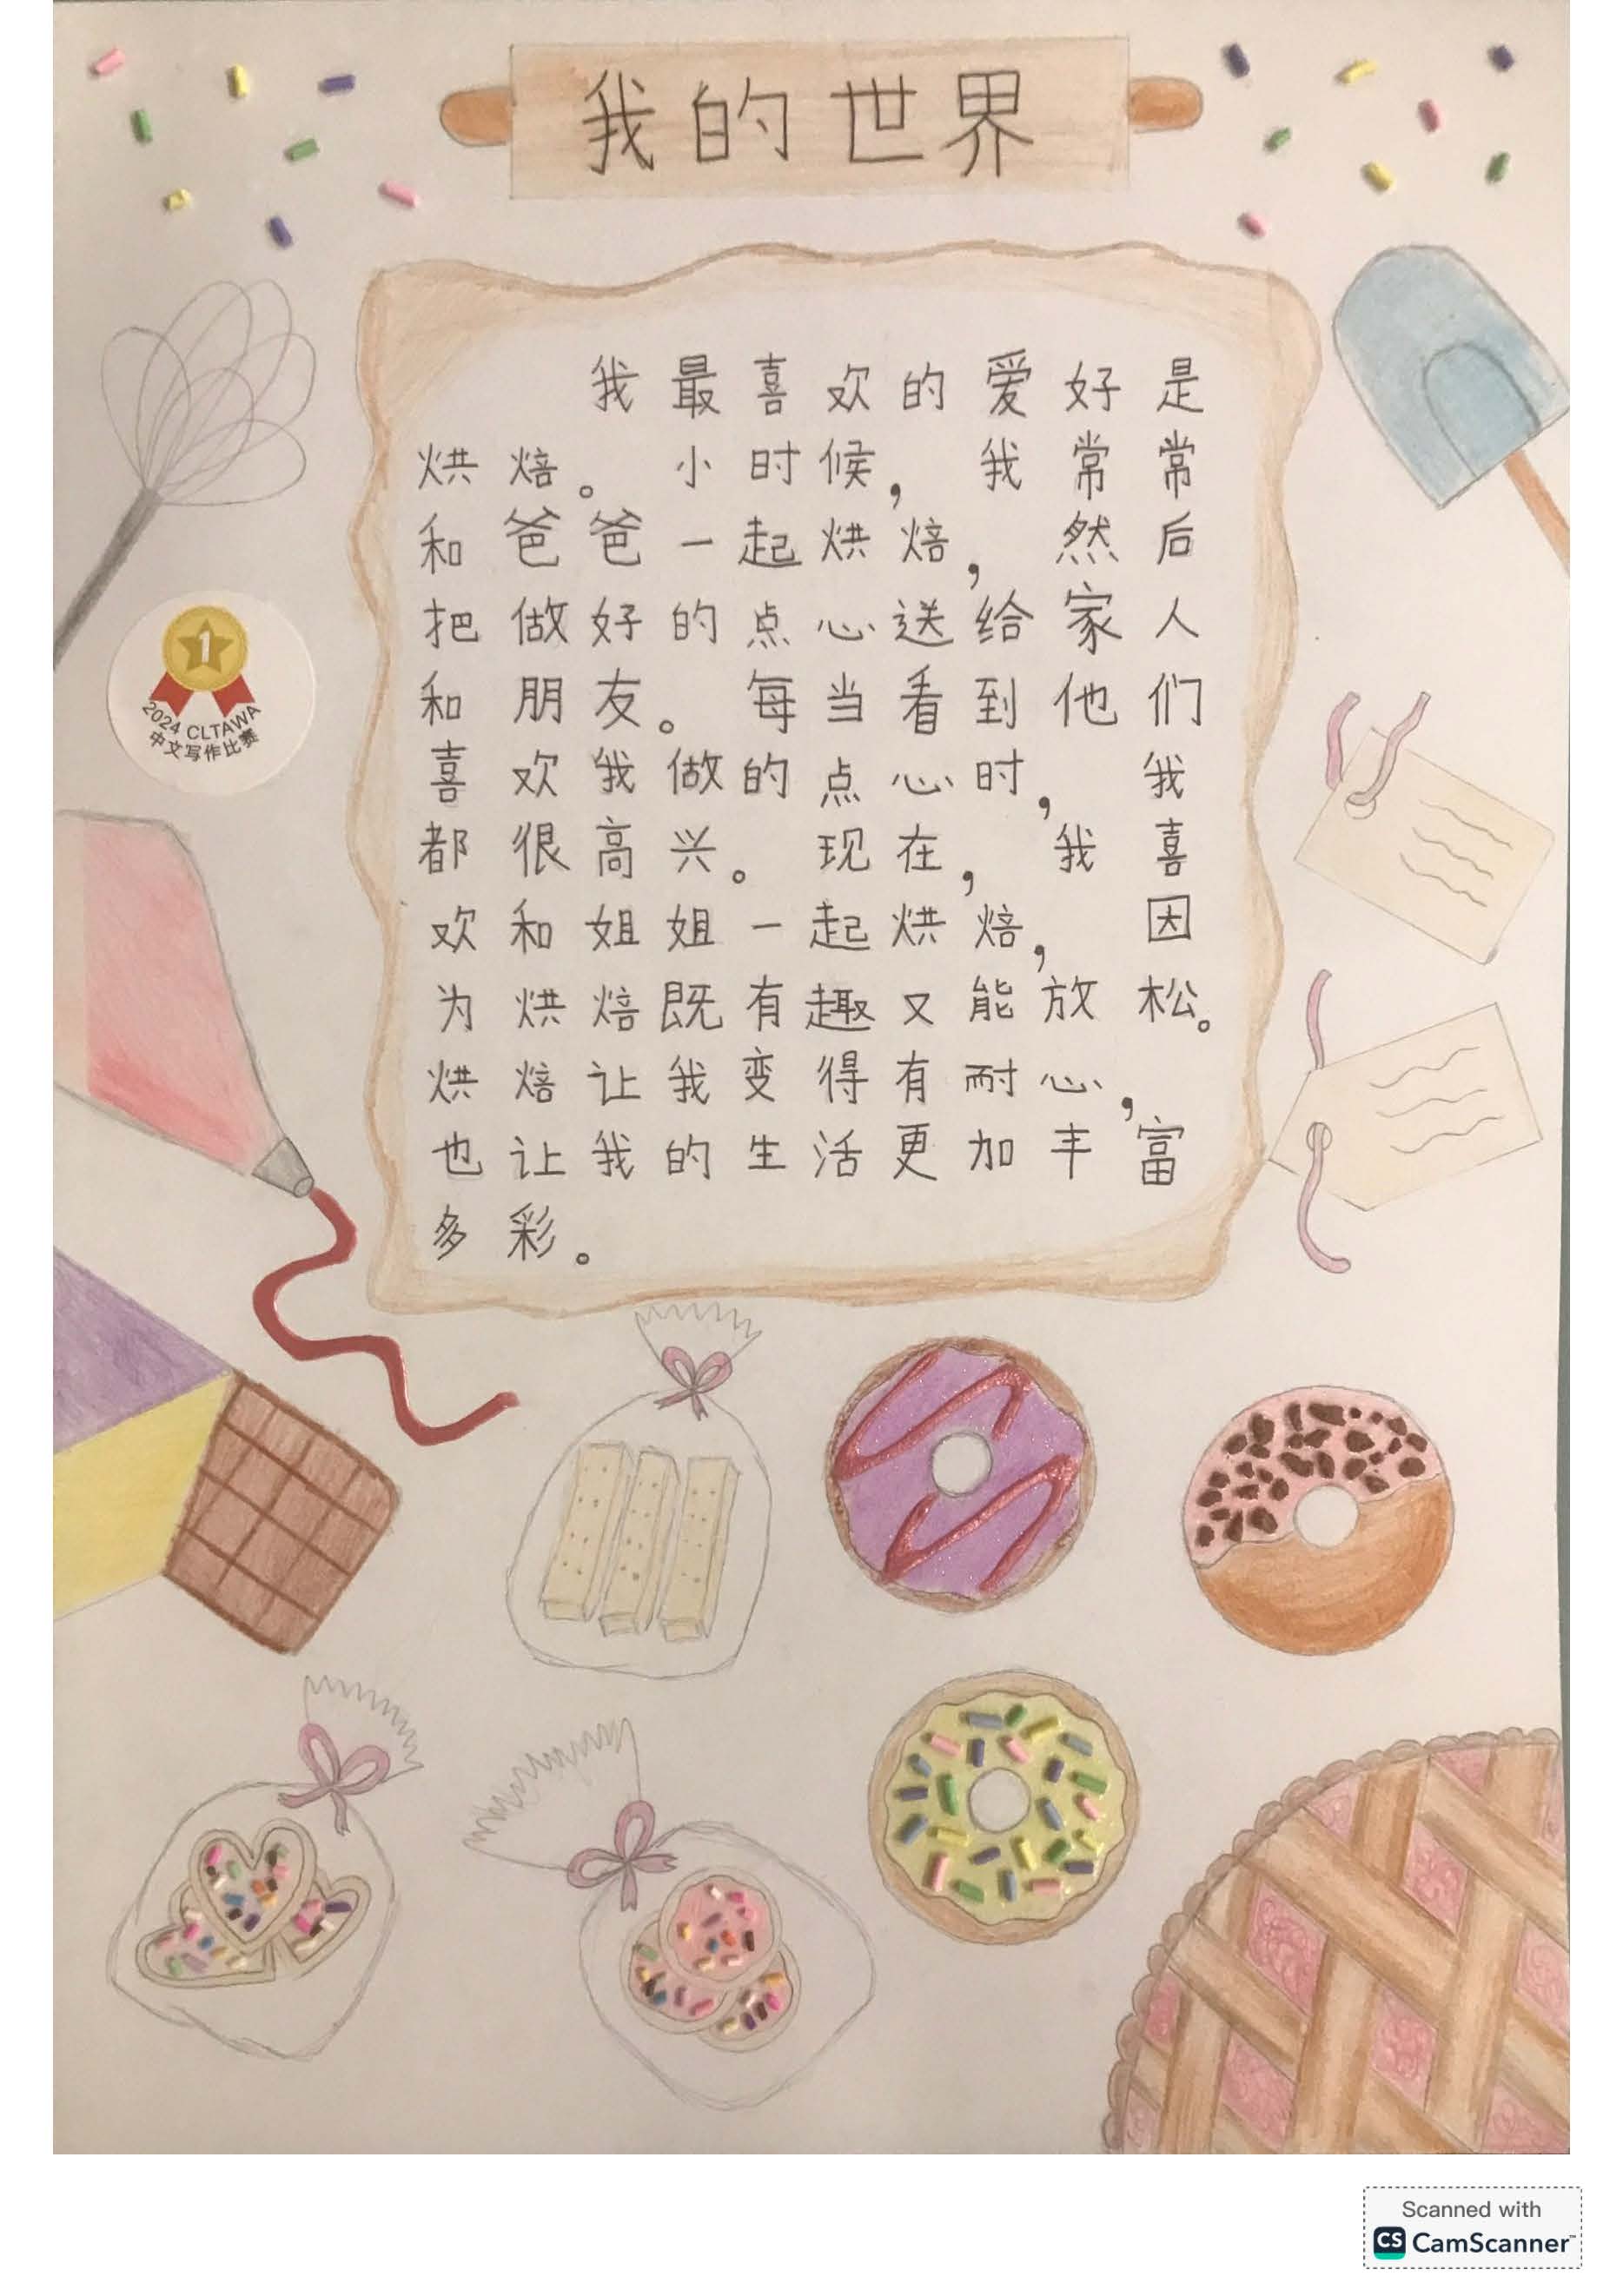 我的世界
我最喜欢的爱好是
烘焙。小时候，我常常
和爸爸一起烘焙，然后
把做好的点心送给家人
和朋友。每当看到他们
喜欢我做的点心时，我
都很高兴。现在，我喜
欢和姐姐一起烘焙，因
为烘焙既有趣又能放松。
烘焙让我变得有耐心，
也让我的生活更加丰富
多彩。
1
2024 CLTAWA
中文写作比赛
Scanned with
CS CamScanner™